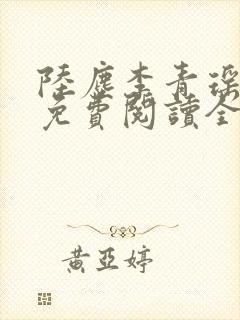 陸塵李青瑤
免費閱讀全
黃亞婷